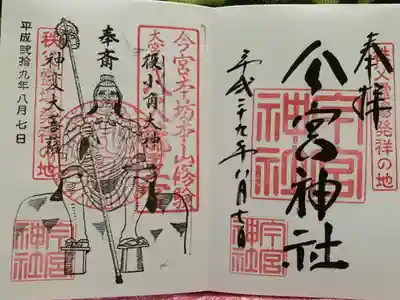 奉拝
秩父霊場発祥の地
今宮神社
今宮神社
今宮神社
平成二十九年八月七日
今宮本坊本山修験
大宮
役小角大神
奉斎
神変大菩薩
秩父霊場発祥の地
平成弐拾九年八月七日
今宮神社